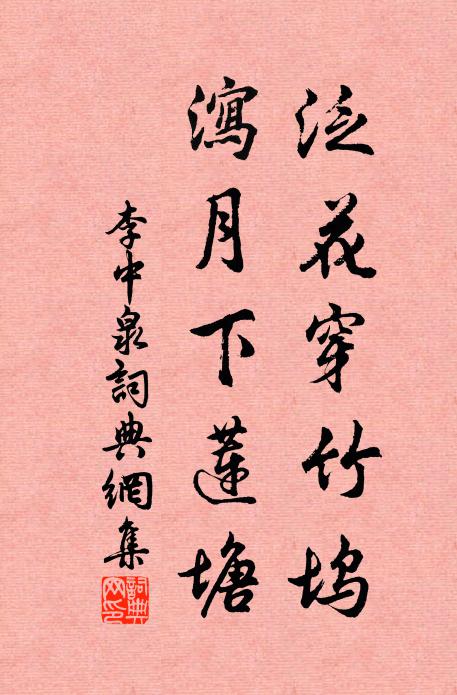 泛花穿竹坞
瀉月下蓮塘
李中泉詞典網集
詞典网印